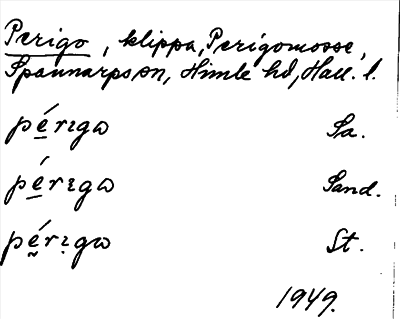 Perigo, klippa, Perigomosse,
Spannarps sn, Himle hd, Hall. l.
pérɩgɷ Sa.
pérɩgɷ Sand.
pérɩgɷ St.
1949.